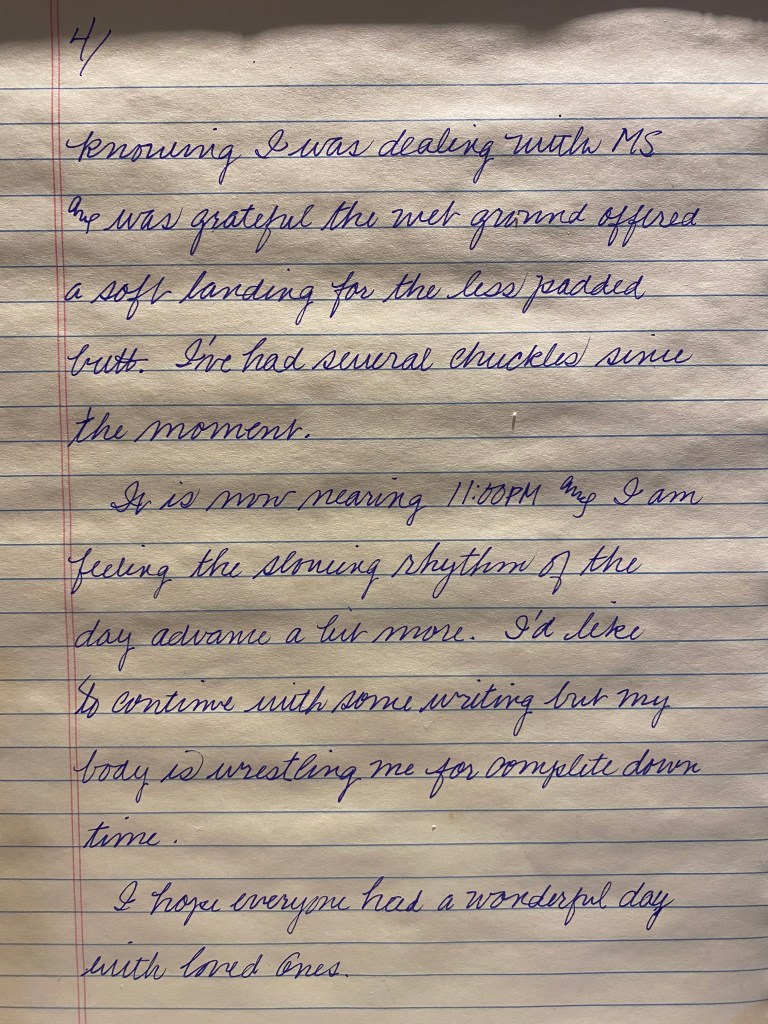 4/
knowing I was dealing with MS
and was grateful the wet ground offered
a soft landing for the less padded
butt. I've had several chuckles since
the moment.
It is now nearing 11:00PM and I am
feeling the slowing rhythm of the
day advance a bit more. I'd like
to continue with some writing but my
body is wrestling me for complete down
time.
I hope everyone had a wonderful day
with loved ones.